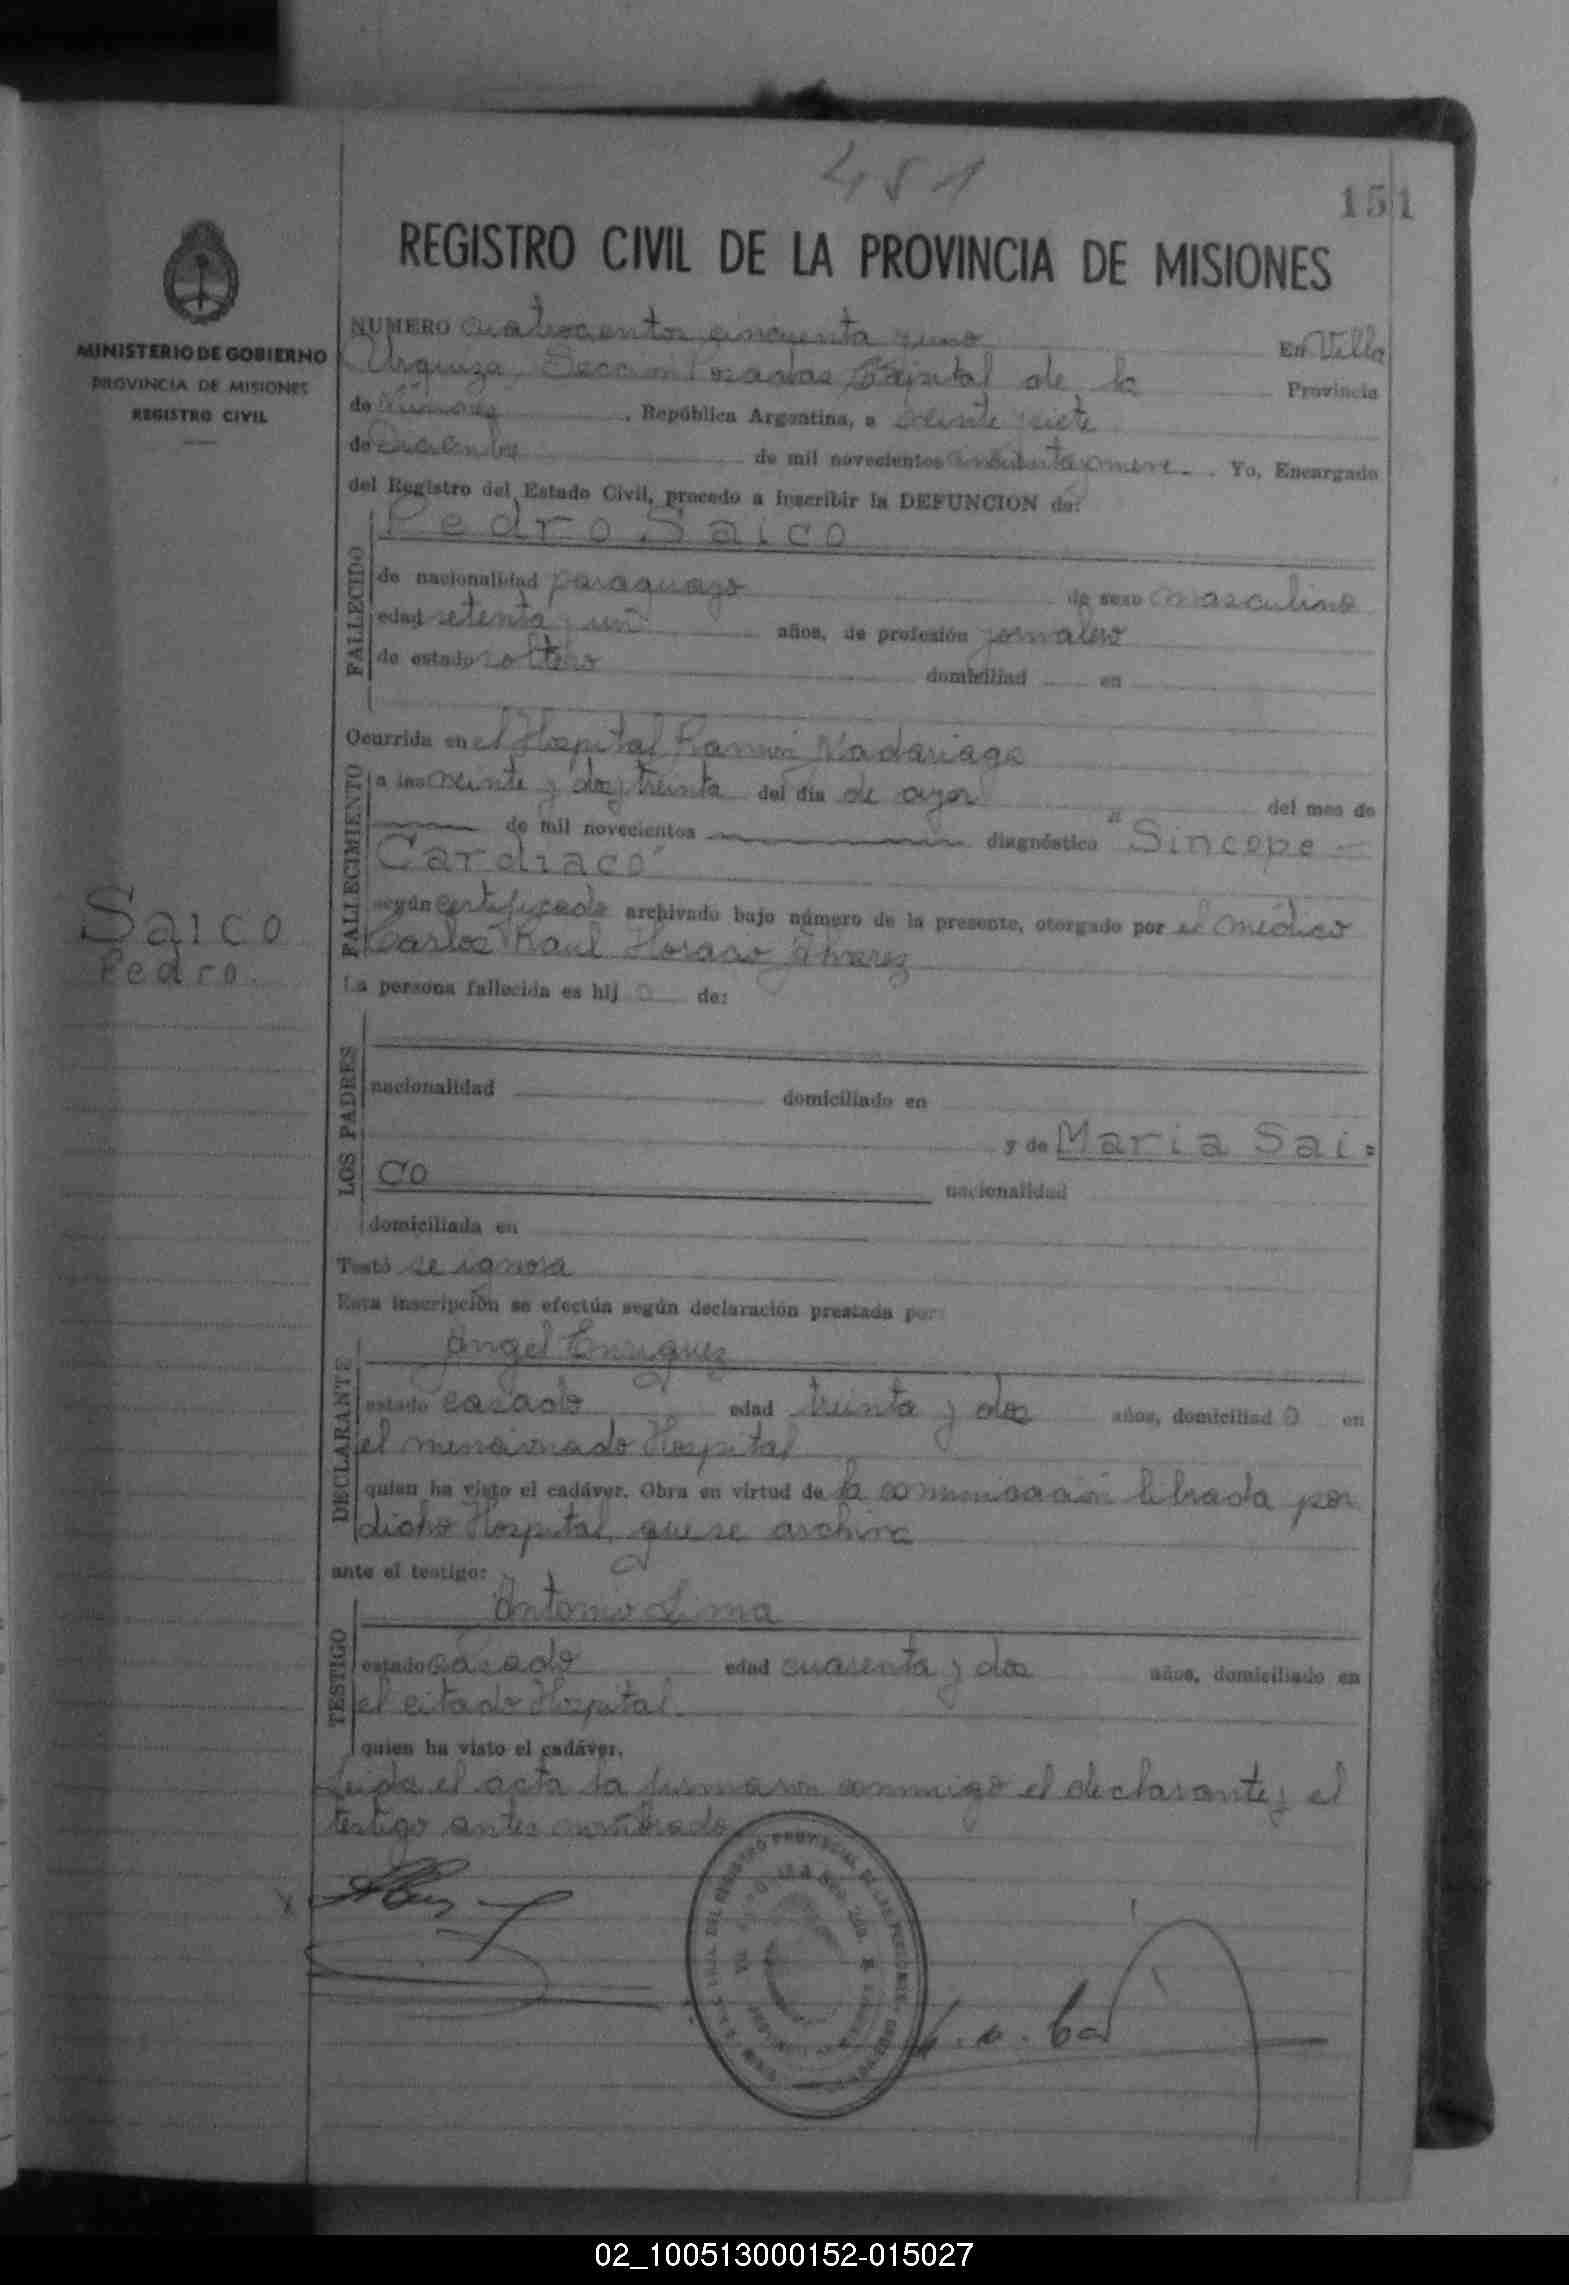 451
151
REGISTRO CIVIL DE LA PROVINCIA DE MISIONES
MINISTERIO DE GOBIERNO
PROVINCIA DE MISIONES
REGISTRO CIVIL
NUMERO cuatrocientos cincuenta y uno En Villa
Urquiza, Sección Posadas Capital de la Provincia
de Misiones, República Argentina, a veinte y siete
de Diciembre de mil novecientos cincuenta y nueve. Yo, Encargado
del Registro del Estado Civil, procedo a inscribir la DEFUNCION de:
FALLECIDO
Pedro Saico
de nacionalidad paraguayo de sexo masculino
edad setenta y un años, de profesión jornalero
de estado soltero domiciliad en
Ocurrida en el Hospital Ramón Madariaga
FALLECIMIENTO
a las veinte y dos y treinta del día de ayer del mes de
de mil novecientos diagnóstico "Síncope
Cardíaco"
según certificado archivado bajo número de la presente, otorgado por el médico
Carlos Raul Horacio Alvarez
Saico
Pedro.
La persona fallecida es hijo de:
LOS PADRES
nacionalidad domiciliado en
y de Maria Sai=
co nacionalidad
domiciliada en
Testó se ignora
Esta inscripción se efectúa según declaración prestada por:
DECLARANTE
Angel Enriquez
estado casado edad treinta y dos años, domiciliado en
el mencionado Hospital
quien ha visto el cadáver. Obra en virtud de la comunicación librada por
dicho Hospital, que se archiva
ante el testigo:
TESTIGO
Antonio Lima
estado casado edad cuarenta y dos años, domiciliado en
el citado Hospital.
quien ha visto el cadáver.
Leída el acta la firmaron conmigo el declarante y el
testigo antes nombrado
02_100513000152-015027